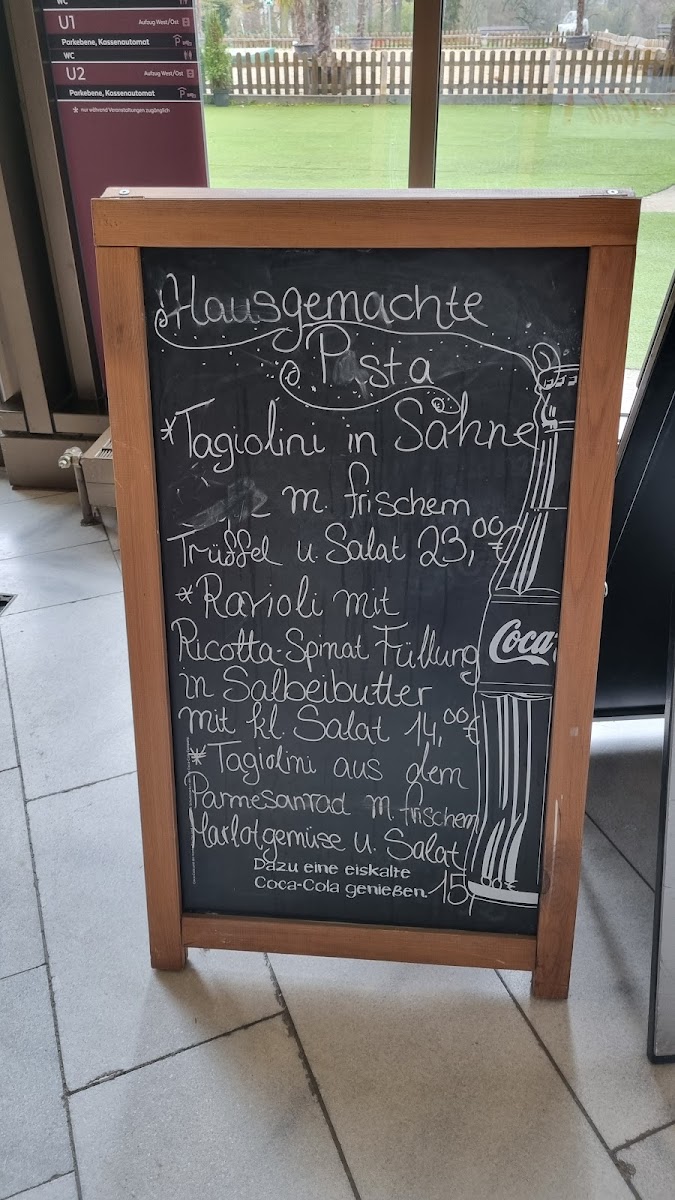 WC
U1 Aufzug West/Ost
Parkebene, Kassenautomat P
WC
U2 Aufzug West/Ost
Parkebene, Kassenautomat P
* nur während Veranstaltungen zugänglich
Hausgemachte
Pasta
*Tagiolini in Sahne
m. frischem
Trüffel u. Salat 23,00€
*Ravioli mit
Ricotta-Spinat Füllung
in Salbeibutter
mit kl. Salat 14,00€
*Tagiolini aus dem
Parmesanrad m. frischem
Marktgemüse u. Salat
15,00€
Coca
Dazu eine eiskalte
Coca-Cola genießen.